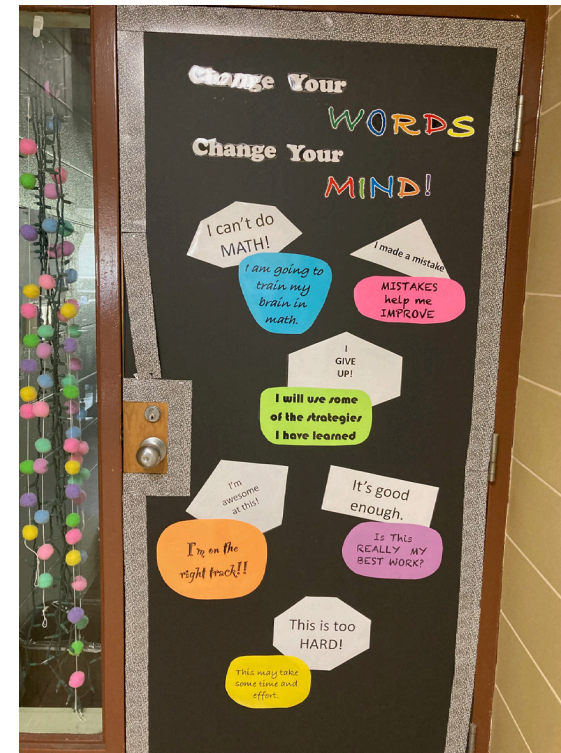 Change Your
WORDS
Change Your
MIND!
I can't do
MATH!
I am going to
train my
brain in
math.
I made a mistake
MISTAKES
help me
IMPROVE
I
GIVE
UP!
I will use some
of the strategies
I have learned
I'm
awesome
at this!
I'm on the
right track!!
It's good
enough.
Is This
REALLY MY
BEST WORK?
This is too
HARD!
This may take
some time and
effort.